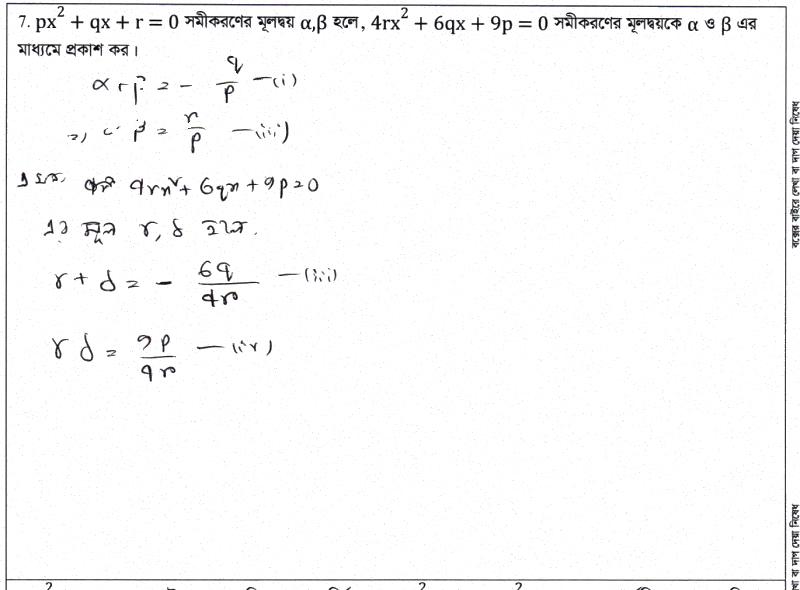 7. px² + qx + r = 0 সমীকরণের মূলদ্বয় α,β হলে, 4rx² + 6qx + 9p = 0 সমীকরণের মূলদ্বয়কে α ও β এর
মাধ্যমে প্রকাশ কর।
α + β = - q/p —(i)
=) α β = r/p —(ii)
4rx² + 6qx + 9p = 0
এর মূল γ, δ হলে.
γ + δ = - 6q/4r —(iii)
γ δ = 9p/4r —(iv)
বক্সের বাইরে লেখা বা দাগ দেয়া নিষেধ
বা দাগ দেয়া নিষেধ